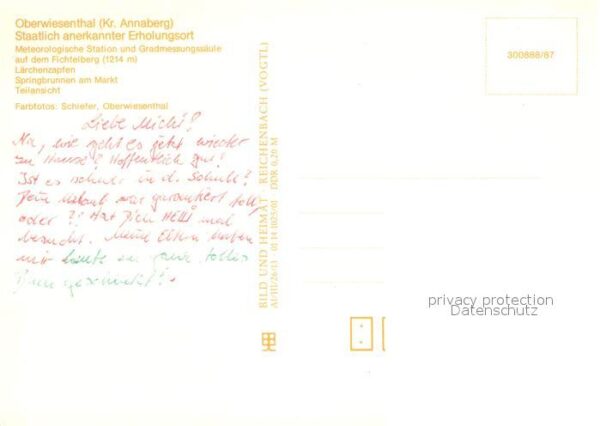 Oberwiesenthal (Kr. Annaberg)
Staatlich anerkannter Erholungsort
Meteorologische Station und Gradmessungssäule
auf dem Fichtelberg (1214 m)
Lärchenzapfen
Springbrunnen am Markt
Teilansicht
Farbfotos: Schiefer, Oberwiesenthal
Liebe Michi!
Na, wie geht es jetzt wieder
zu Hause? Hoffentlich gut!
Ist es schwer in d. Schule?
Dein Urlaub war garantiert toll,
oder?! Hat Dich mal
besucht. Meine Eltern haben
mir heute ein ganz tolles
geschickt!
BILD UND HEIMAT REICHENBACH (VOGTL)
A1/III/26/13 01 14 1025/01 DDR 0,20 M
300888/87
privacy protection
Datenschutz